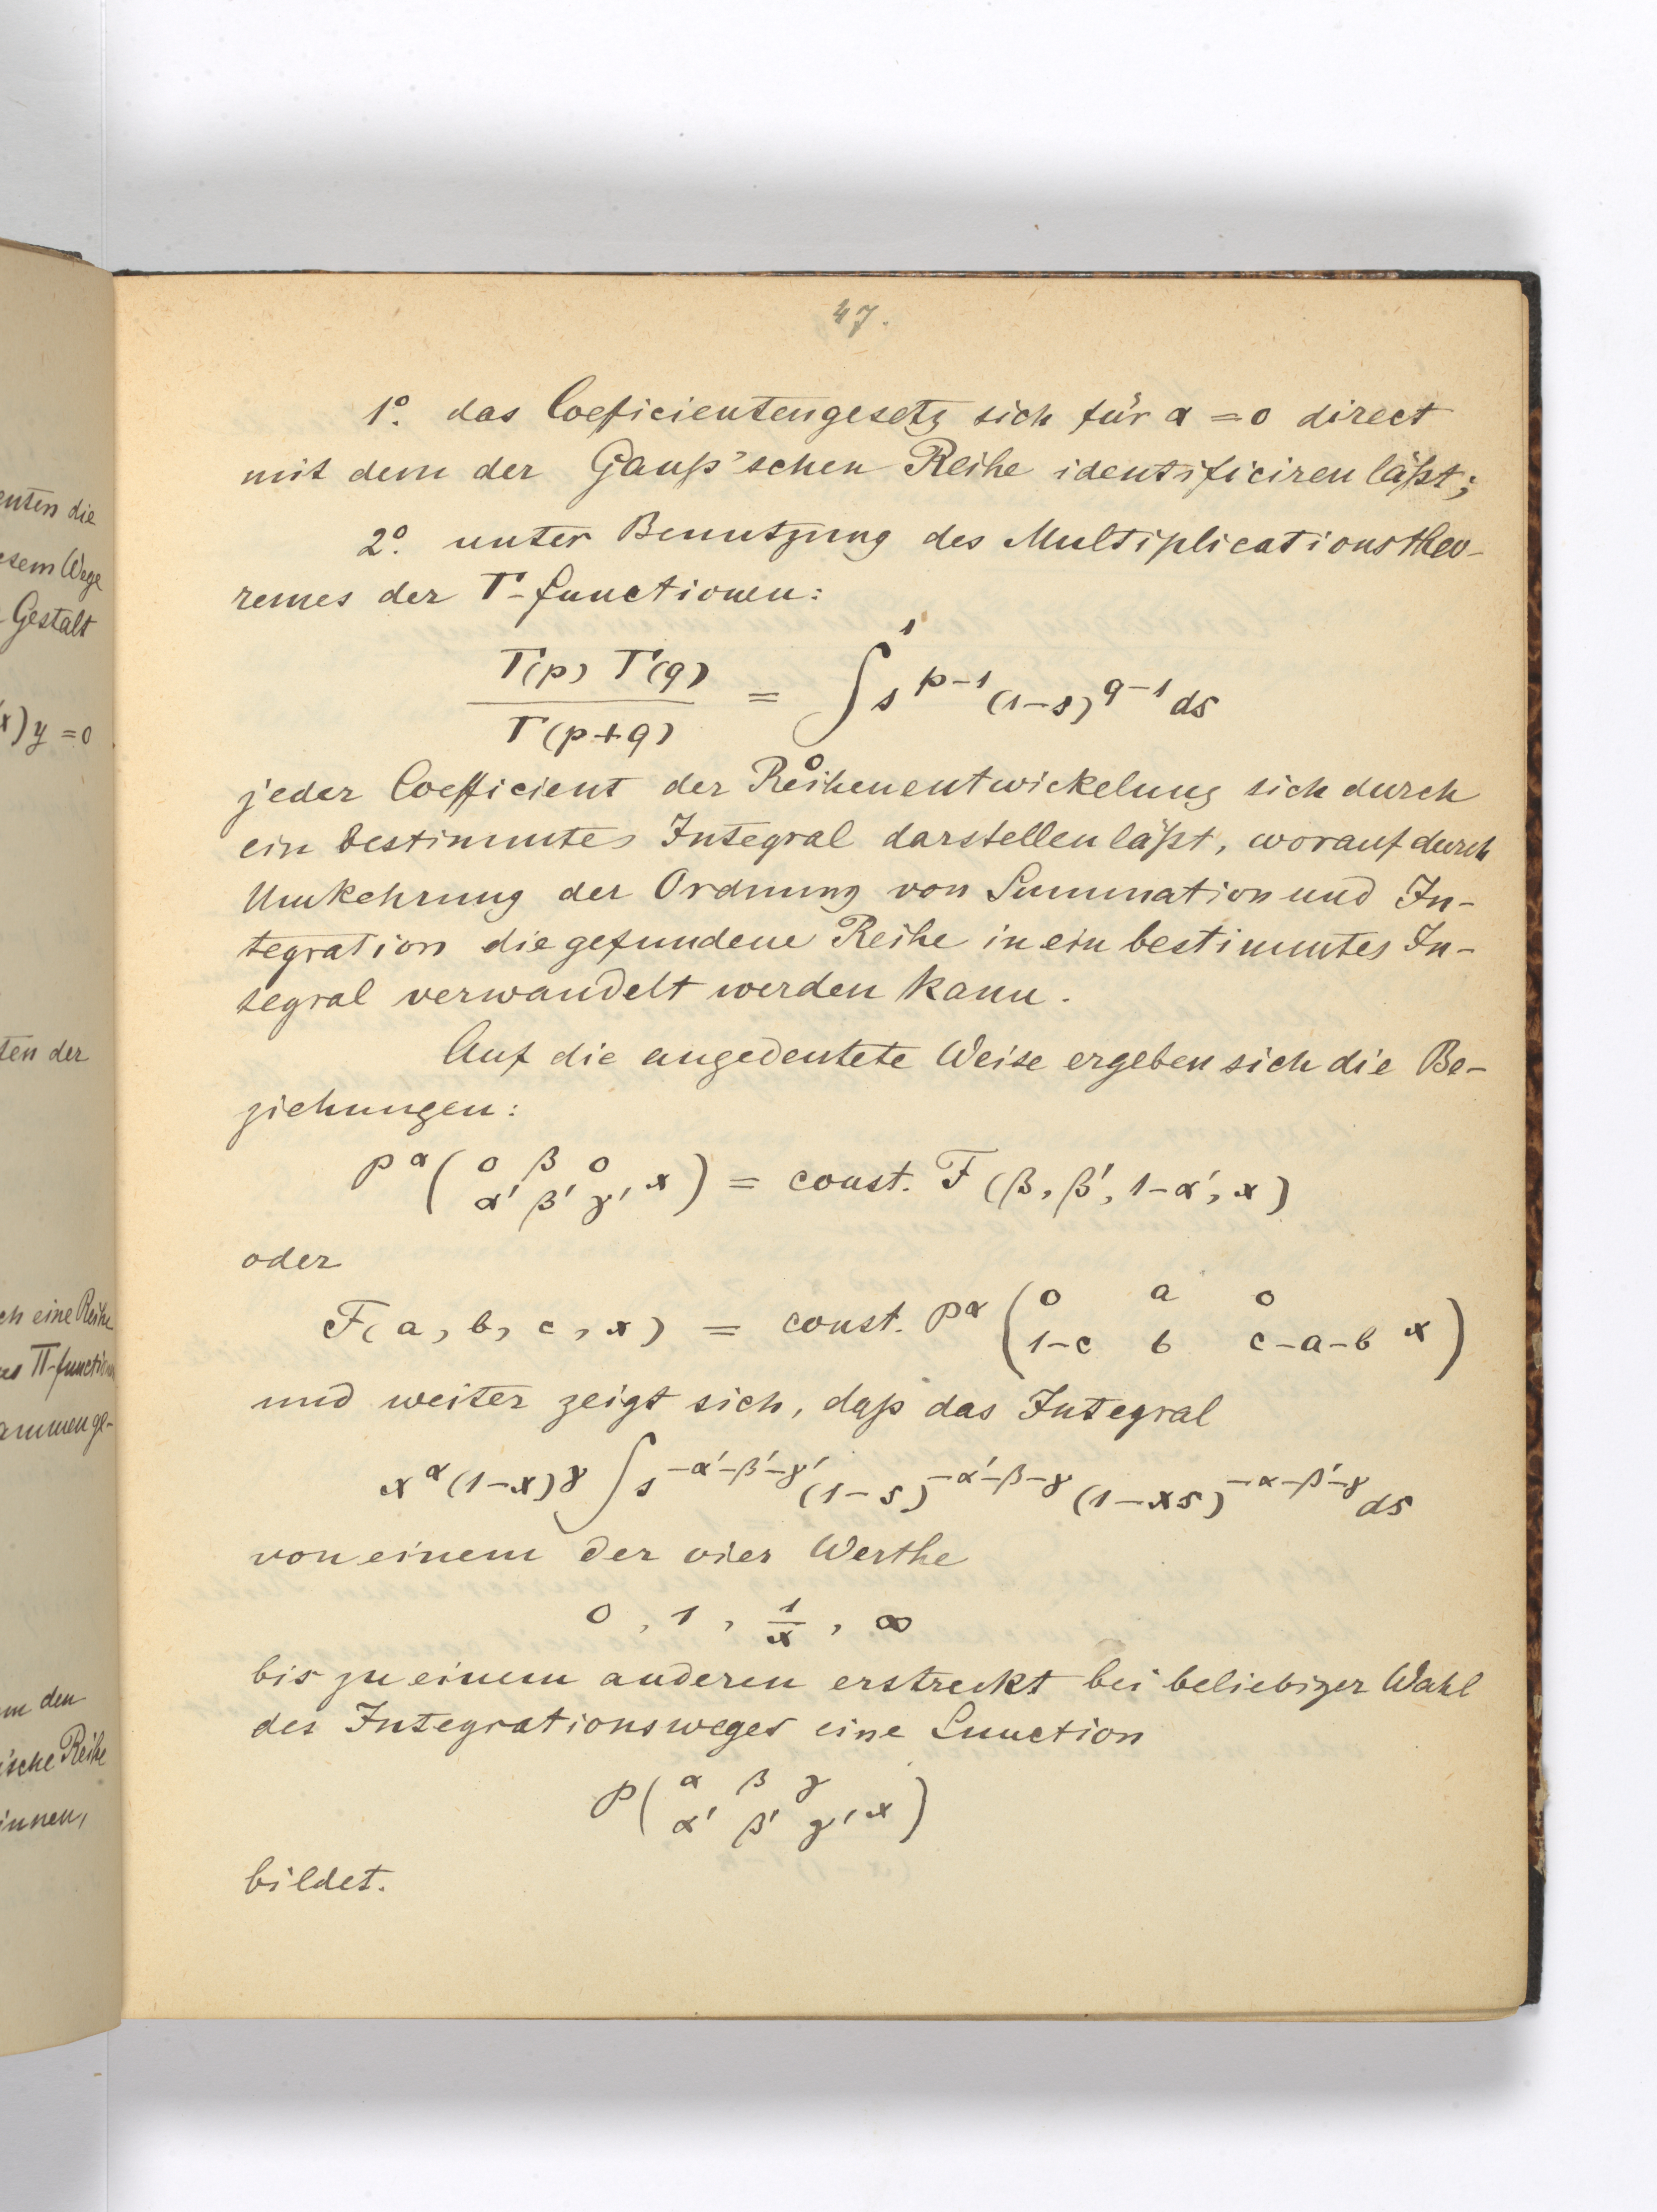 enten die
esem Wege
Gestalt
x) y = 0
ten der
ch eine Reihe
es Π-function
ammenge-
m den
ische Reihe
innen,
47.
1º. das Coeficientengesetz sich für α = 0 direct
mit dem der Gauß'schen Reihe identificiren läßt;
2º. unter Benutzung des Multiplicationstheo-
remes der Γ-functionen:
Γ(p) Γ(q) / Γ(p+q) = ∫₀¹ s^{p-1} (1-s)^{q-1} ds
jeder Coefficient der Reihenentwickelung sich durch
ein bestimmtes Integral darstellen läßt, worauf durch
Umkehrung der Ordnung von Summation und In-
tegration die gefundene Reihe in ein bestimmtes In-
tegral verwandelt werden kann.
Auf die angedeutete Weise ergeben sich die Be-
ziehungen:
P^α ( 0 β 0
α' β' γ' x ) = const. F (β, β', 1-α', x)
oder
F(a, b, c, x) = const. P^α ( 0 a 0
1-c b c-a-b x )
und weiter zeigt sich, daß das Integral
x^α (1-x)^γ ∫ s^{-α'-β'-γ'} (1-s)^{-α'-β-γ} (1-xs)^{-α-β'-γ} ds
von einem der vier Werthe
0, 1, 1/x, ∞
bis zu einem anderen erstreckt bei beliebiger Wahl
des Integrationsweges eine Function
P ( α β γ
α' β' γ' x )
bildet.